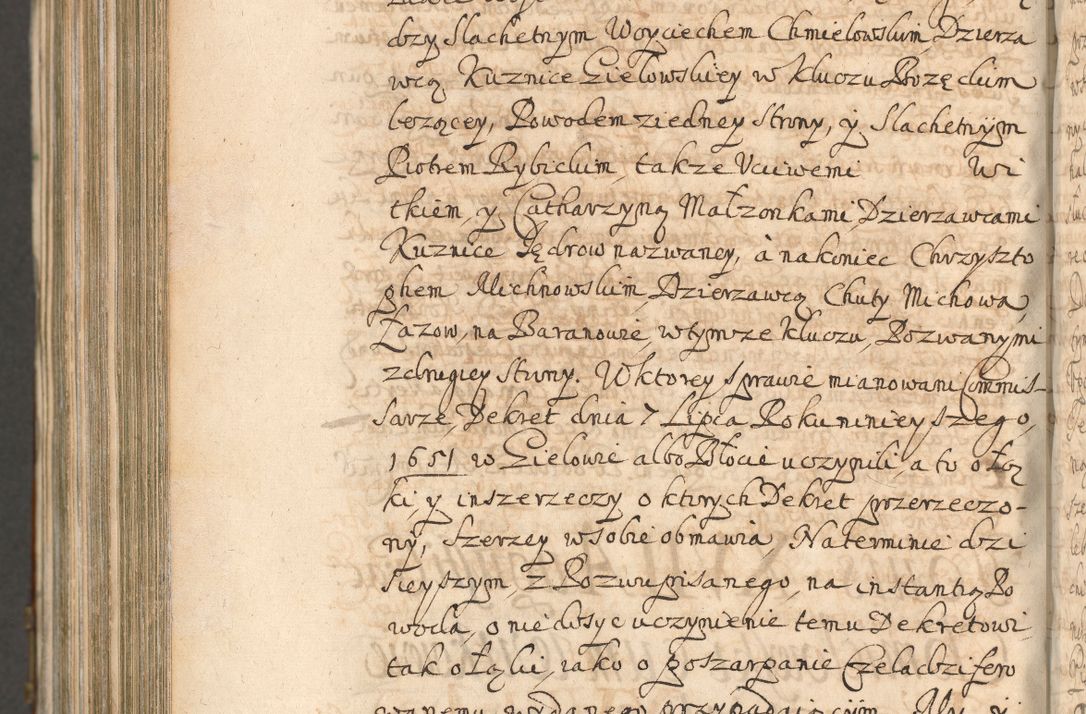 dzy Slachetnym Woyciechem Chmielowskim, Dzierza
wcą Kuznice Zielowskiey w Kluczu Rozęckim
bęzącey, Powodem ziedney strony, y Slachetnym
Piotrem Rybickim, także Ucciwemi Wi
tkiem, y Catharzyną Małzonkami, Dzierzawcami
Kuznice Jędrow nazwaney, á nakoniec Chrzyszto
phem Michnowskim Dzierzawcą Chuty Michowa,
Łazow, na Baranowie, wtymze Kluczu, Pozwanymi
zdrugiey strony. Wktorey sprawie mianowani Commis-
sarze, Dekret dnia 7 Lipca Roku ninieyszego,
1651 w Zielowie albo Błocie uczynili, a to o Łą
ki, y insze rzeczy o ktorych Dekret przerzeczo-
ny, szerzey w sobie obmawia, Na terminie dzi
sieyszym, z Pozwu pisanego, na instantią Po
woda, o nie dosyc uczynienie temu Dekretowi
tak o Łąki, iako o poszarpanie Czeladzi fero
wanemu wydanego przypadaiącym